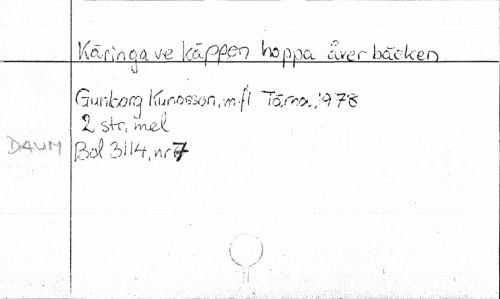 Käringa ve käppen hoppa åver bäcken
Gunborg Kunosson, m.fl. Tärna, 1978
2 str. mel
DAUM Bd 3114, nr 7